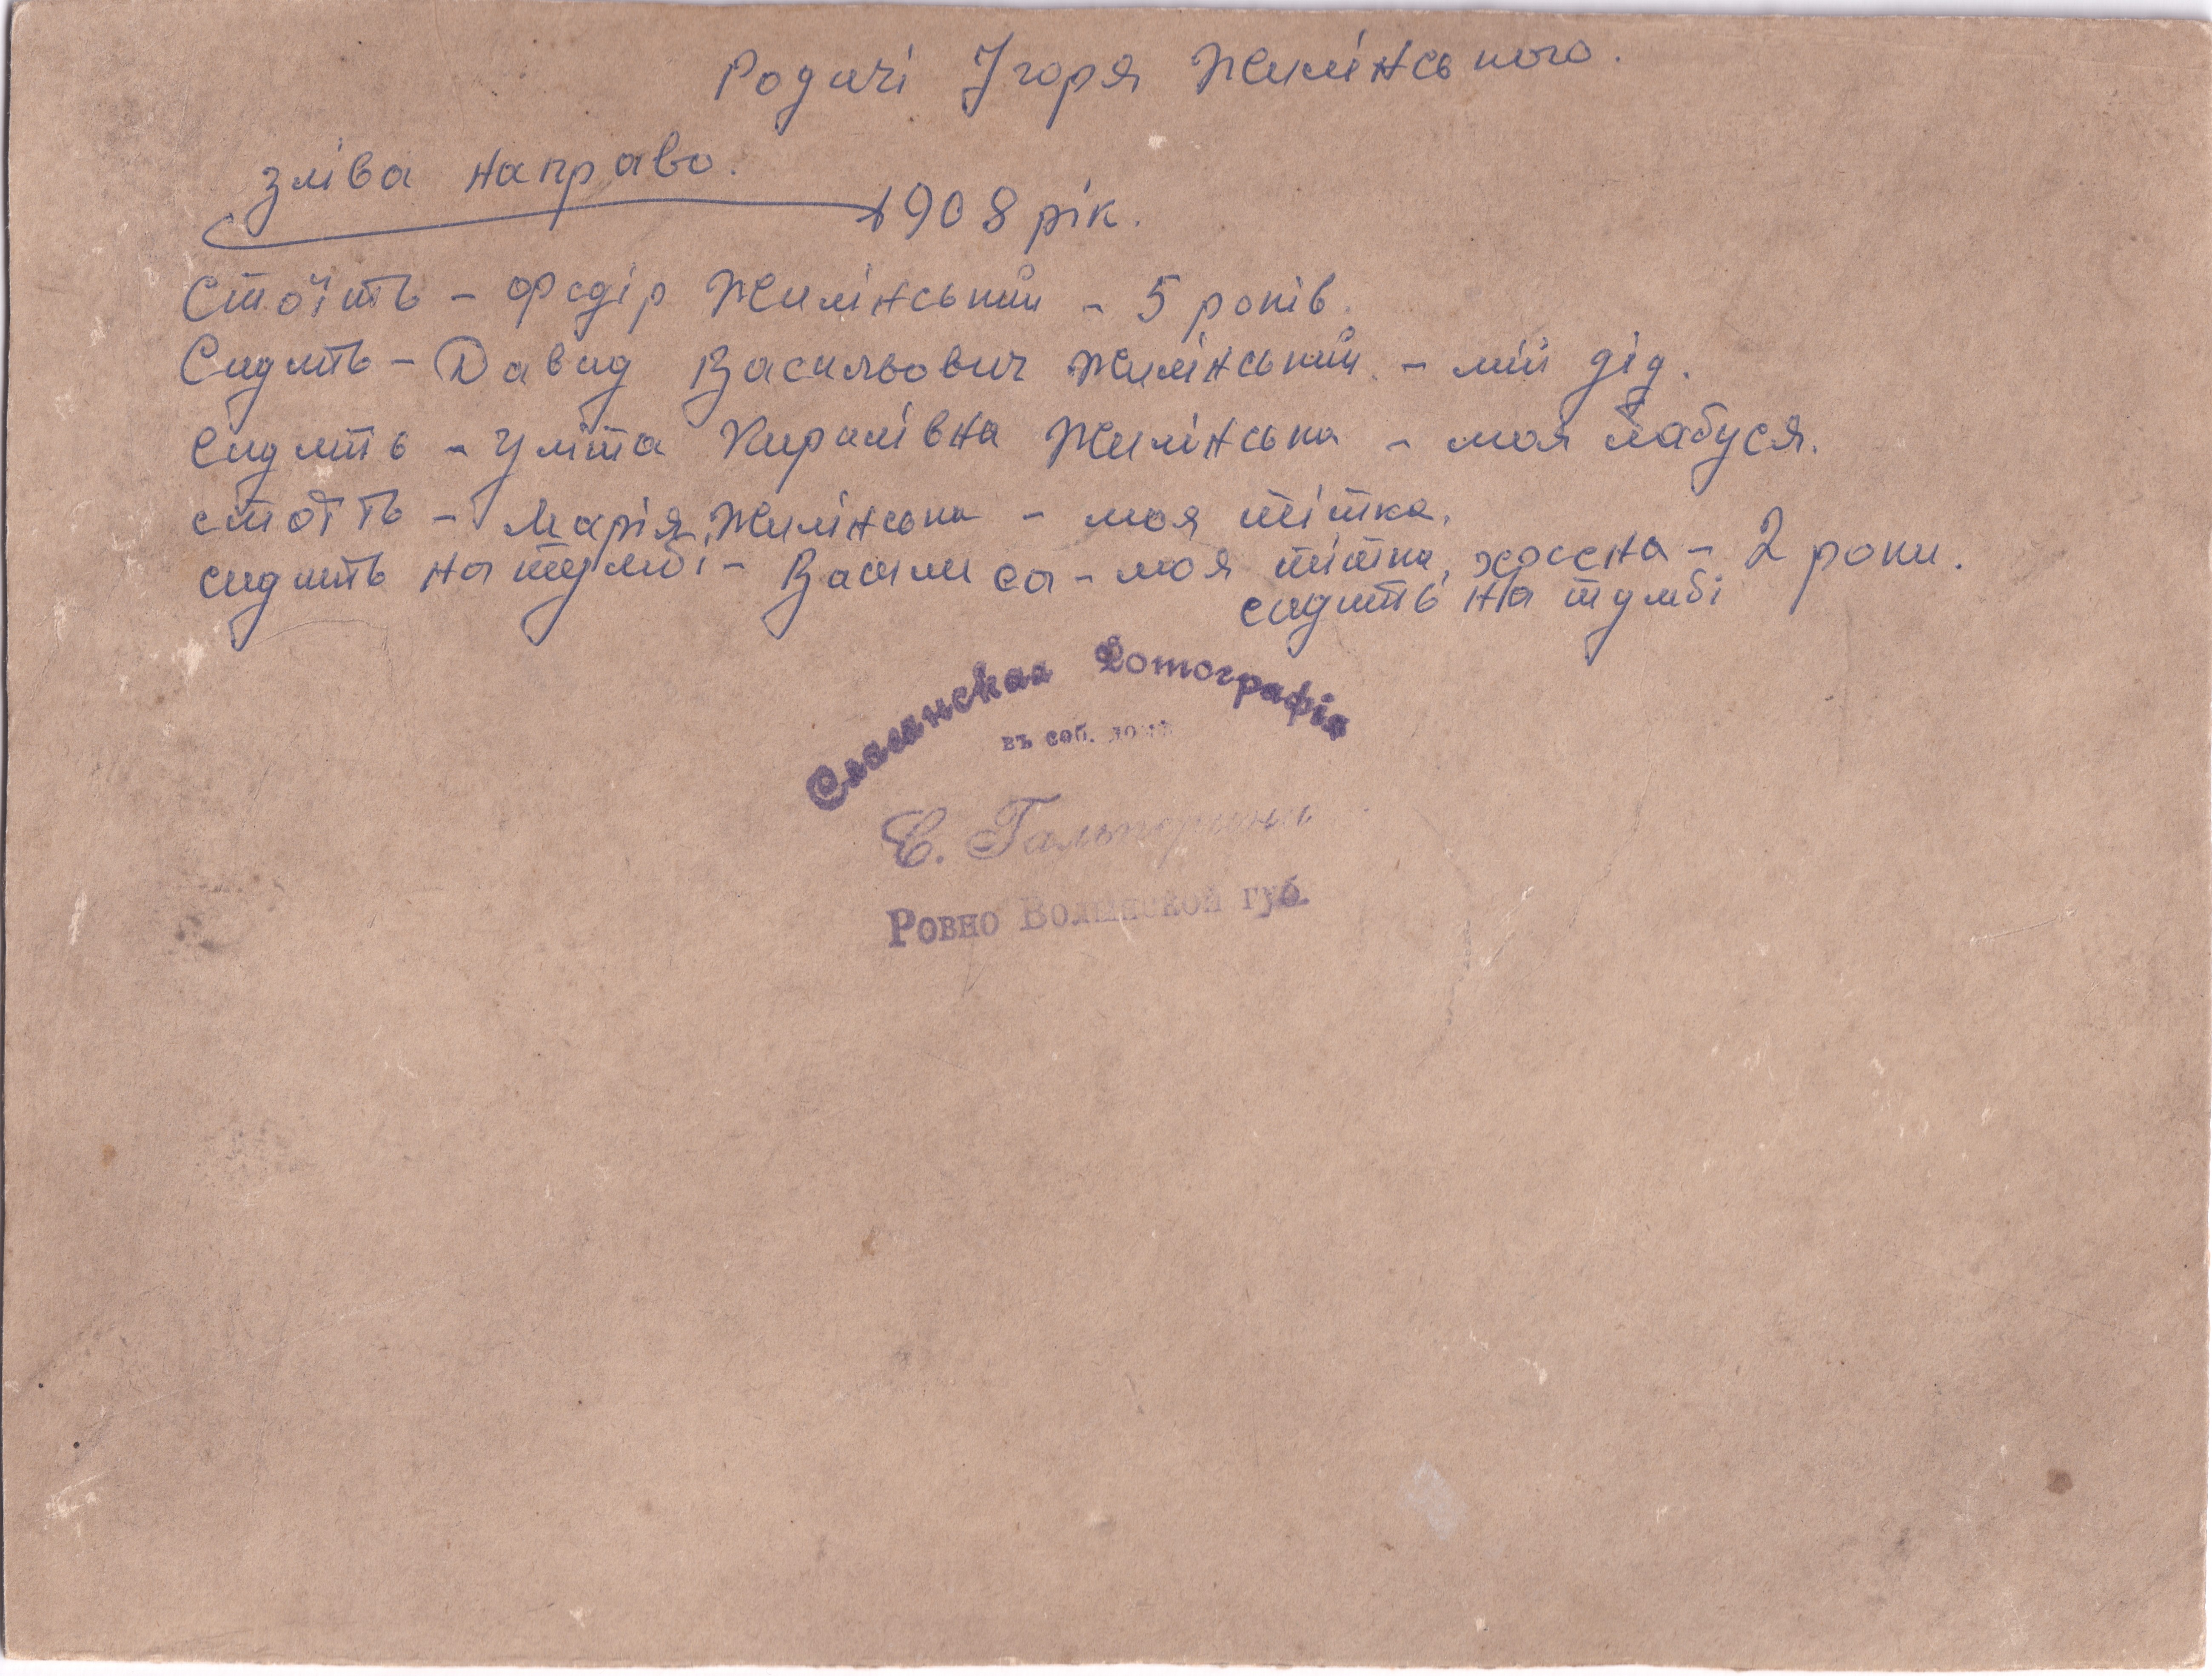 Родичі Ігоря Жилінського.
зліва направо.
1908 рік.
Стоїть – Федір Жилінський – 5 років.
Сидить – Давид Васильович Жилінський – мій дід.
Сидить – Уліта Кирилівна Жилінська – моя бабуся.
стоїть – Марія Жилінська – моя тітка.
сидить на тумбі – Васили са – моя тітка, хресна – 2 роки.
сидить на тумбі
Славянская Фотографія
въ соб. домѣ
С. Гальперинъ
Ровно Волынской губ.